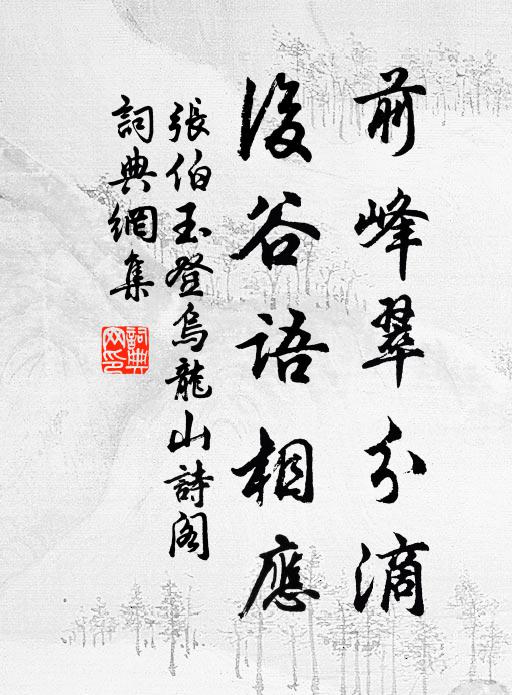 前峰翠分滴
後谷語相應
張伯玉登烏龍山詩閣
詞典網集
詞典